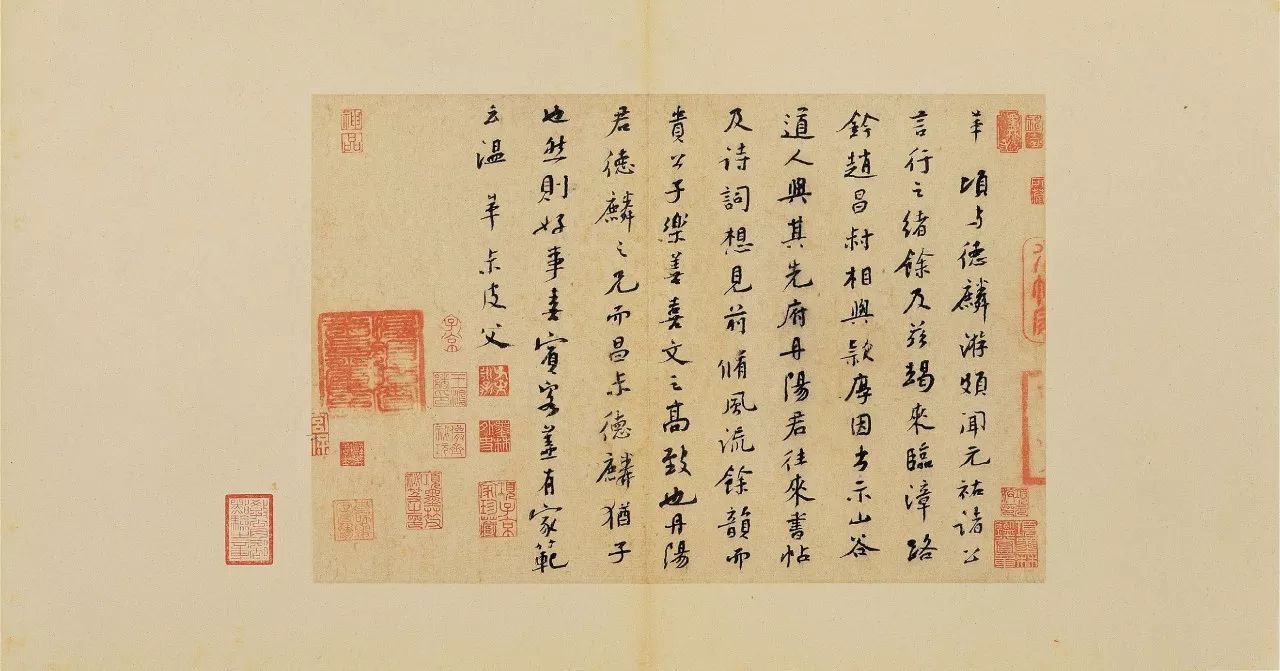 革 頃与德麟游頗闻元祐諸公
言行之緒餘及茲朅來臨漳路
鈐趙昌叔相與款厚因出示山谷
道人與其先府丹陽君往來書帖
及詩詞想見前脩風流餘韻而
貴公子樂善喜文之高致也丹陽
君德麟之兄而昌叔德麟猶子
也然則好事喜賓客蓋有家範
云温 革叔皮父
神品
子京
項子京家珍藏